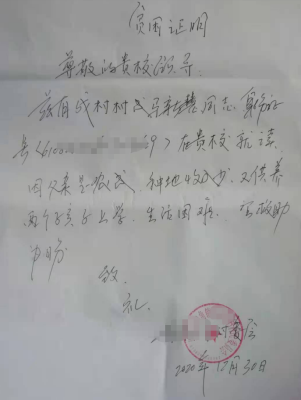 贫困证明
尊敬的贵校领导:
兹有我村村民 同志,身份证
号(610 9)在贵校就读
因父亲是农民,种地收入少,又供养
两个孩子上学,生活困难,
申请
致
礼
村委会
2020年12月30日